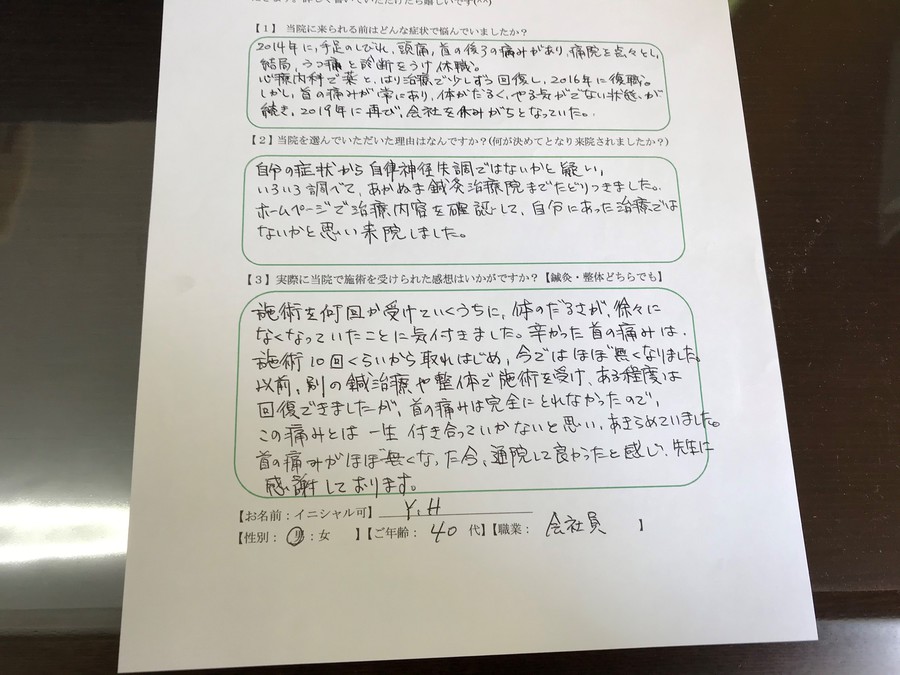 だきます。詳しく書いていただけたら嬉しいです(^^)
【1】 当院に来られる前はどんな症状で悩んでいましたか？
2014年に、手足のしびれ、頭痛、首の後ろの痛みがあり、病院を点々とし、
結局、うつ病と診断をうけ休職。
心療内科で薬と、はり治療で少しずつ回復し、2016年に復職。
しかし、首の痛みが常にあり、体がだるく、やる気がでない状態が
続き、2019年に再び、会社を休みがちとなっていた。
【2】当院を選んでいただいた理由はなんですか？(何が決めてとなり来院されましたか？)
自分の症状から自律神経失調ではないかと疑い、
いろいろ調べて、あかぬま鍼灸治療院までたどりつきました。
ホームページで治療内容を確認して、自分にあった治療では
ないかと思い来院しました。
【3】実際に当院で施術を受けられた感想はいかがですか？【鍼灸・整体どちらでも】
施術を何回か受けていくうちに、体のだるさが、徐々に
なくなっていたことに気付きました。辛かった首の痛みは、
施術10回くらいから取れはじめ、今ではほぼ無くなりました。
以前、別の鍼治療や整体で施術を受け、ある程度は
回復できましたが、首の痛みは完全にとれなかったので、
この痛みとは一生付き合っていかないと思い、あきらめていました。
首の痛みがほぼ無くなった今、通院して良かったと感じ、先生に
感謝しております。
【お名前：イニシャル可】 Y.H
【性別： 男：女 】【ご年齢： 40 代】【職業： 会社員 】